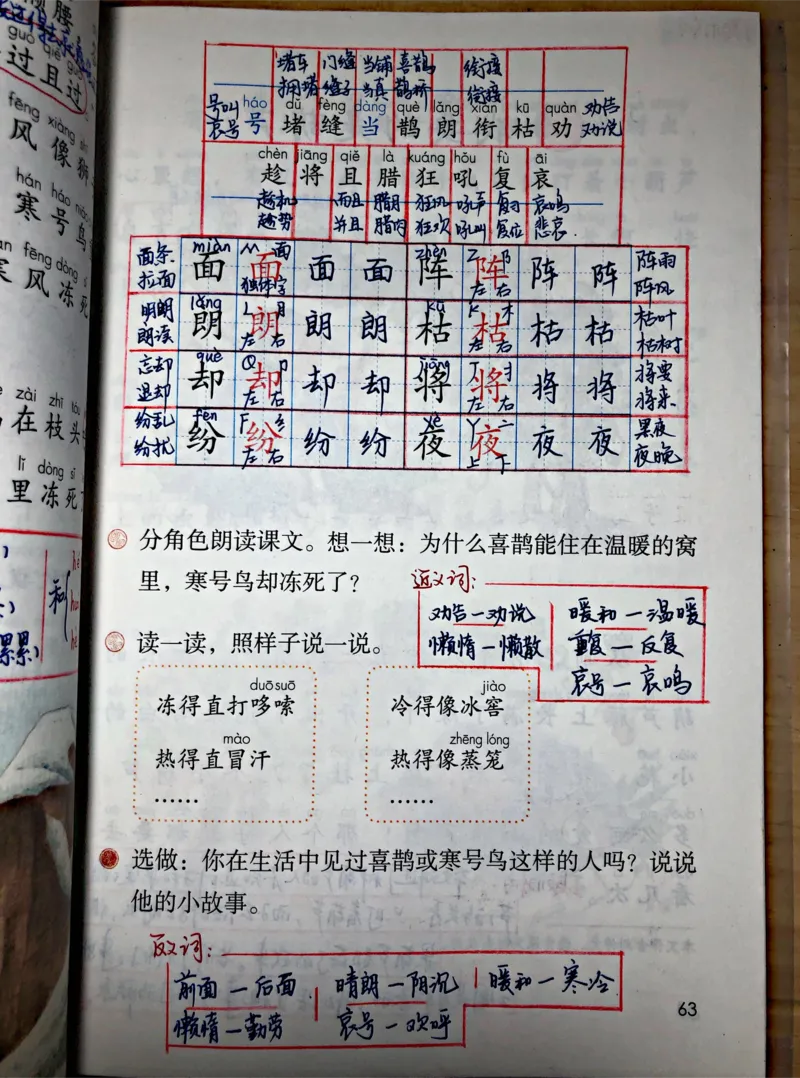 堵车 门缝 当铺 喜鹊 衔接
拥堵 缝子 当真 鹊桥
号叫 háo dǔ fèng dàng què lǎng xián kū quàn 劝告
哀号 号 堵 缝 当 鹊 朗 衔 枯 劝 劝说
chèn jiāng qiě là kuáng hǒu fù āi
趁 将 且 腊 狂 吼 复 哀
趁机 而且 腊月 狂风 吼声 复习 哀鸣
趁势 并且 腊肉 狂欢 吼叫 复位 悲哀
面条 miàn 面 面 面 面 阵 阵 阵 阵 阵雨
拉面 独体字 左右 阵风
明朗 lǎng 朗 朗 朗 朗 kū 枯 枯 枯 枯 枯叶
朗读 左右 左右 枯树
忘却 què 却 却 却 却 jiāng 将 将 将 将 将要
退却 左右 左右 将来
纷乱 fēn 纷 纷 纷 纷 yè 夜 夜 夜 夜 黑夜
纷扰 左右 上下 夜晚
分角色朗读课文。想一想：为什么喜鹊能住在温暖的窝
里，寒号鸟却冻死了？
近义词：
劝告—劝说 暖和—温暖
懒惰—懒散 重复—反复
哀号—哀鸣
读一读，照样子说一说。
duō suō jiào
冻得直打哆嗦 冷得像冰窖
mào zhēng lóng
热得直冒汗 热得像蒸笼
…… ……
选做：你在生活中见过喜鹊或寒号鸟这样的人吗？说说
他的小故事。
反义词：
前面—后面 晴朗—阴沉 暖和—寒冷
懒惰—勤劳 哀号—欢呼
63
guò qiě guò
过且过
fēng xiàng
风像狮
hán háo niǎo
寒号鸟
fēng dòng
风冻死
zài zhī tóu
在枝头
lǐ dòng sǐ
里冻死
和